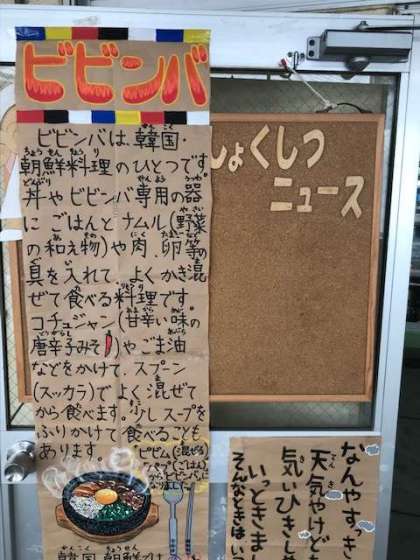 ビビンバ
ビビンバは、韓国・
朝鮮料理のひとつです。
丼やビビンバ専用の器
にごはんとナムル(野菜
の和え物)や肉、卵等の
具を入れて、よくかき混
ぜて食べる料理です。
コチュジャン(甘辛い味の
唐辛子みそ)やごま油
などをかけて、スプーン
(スッカラ)でよく混ぜて
から食べます。少しスープを
ふりかけて食べることも
あります。
ピビム(混ぜる)
韓国、朝鮮では
しょくしつ
ニュース
なんやすっき
天気やけど
気いひきし
いっときま
そんなときはい